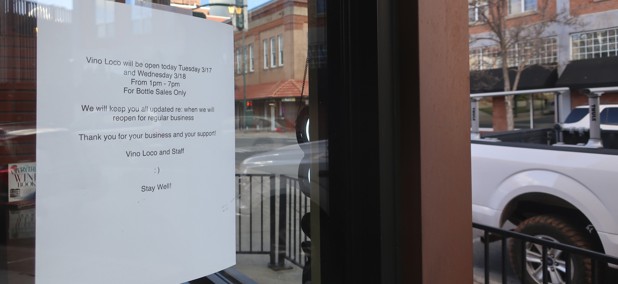 Vino Loco will be open today Tuesday 3/17
and Wednesday 3/18
From 1pm - 7pm
For Bottle Sales Only
We will keep you all updated re: when we will
reopen for regular business
Thank you for your business and your support!
Vino Loco and Staff
: )
Stay Well!
WINE